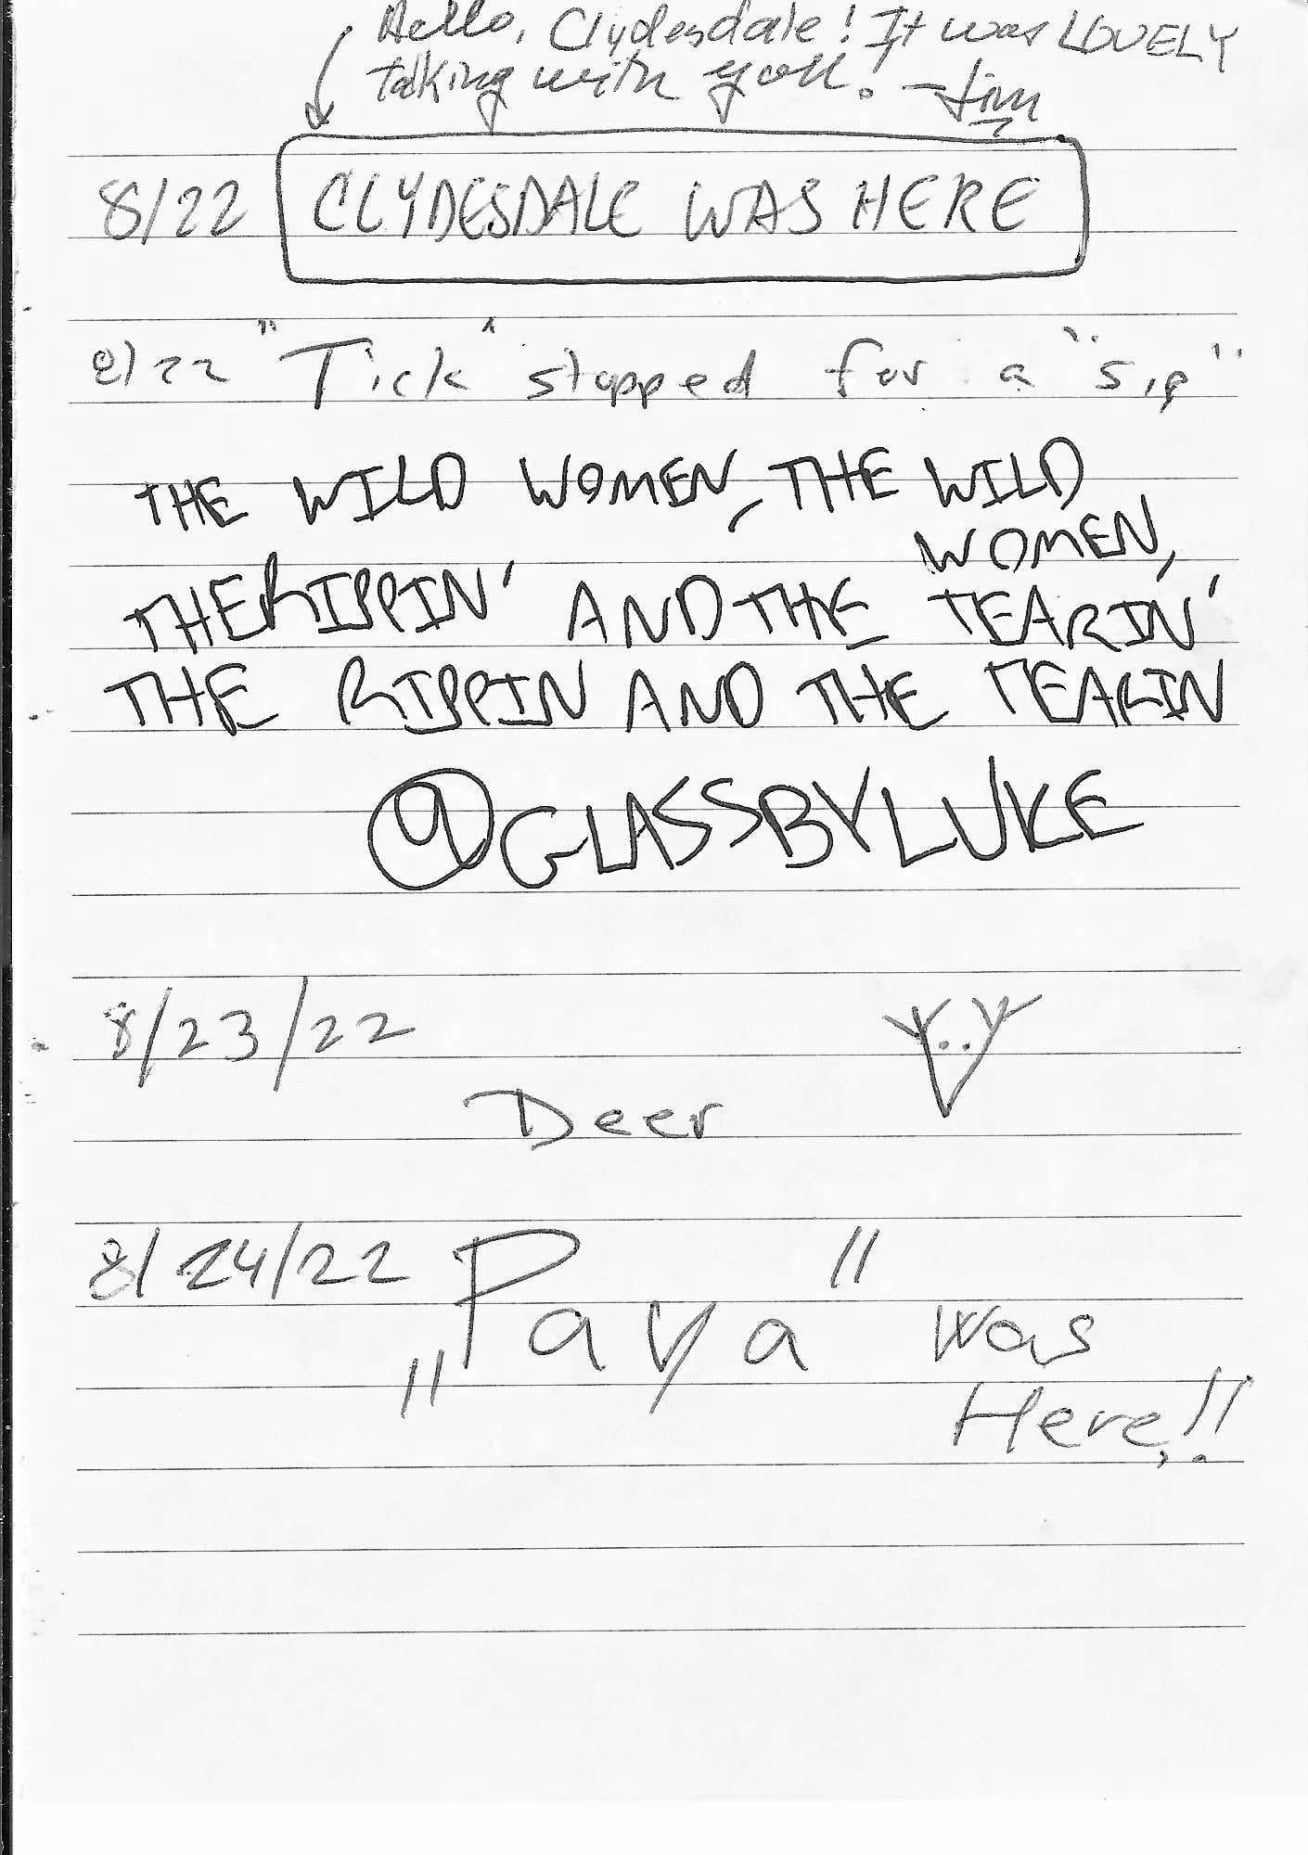 Hello, Clydesdale! It was LOVELY
talking with you! -Jim
8/22 CLYDESDALE WAS HERE
8/22 "Tick" stopped for a "sip"
THE WILD WOMEN, THE WILD
WOMEN,
THE RIPPIN' AND THE TEARIN'
THE RIPPIN AND THE TEARIN
@GLASSBYLUKE
8/23/22
Deer
8/24/22 "Paya" was
Here!!